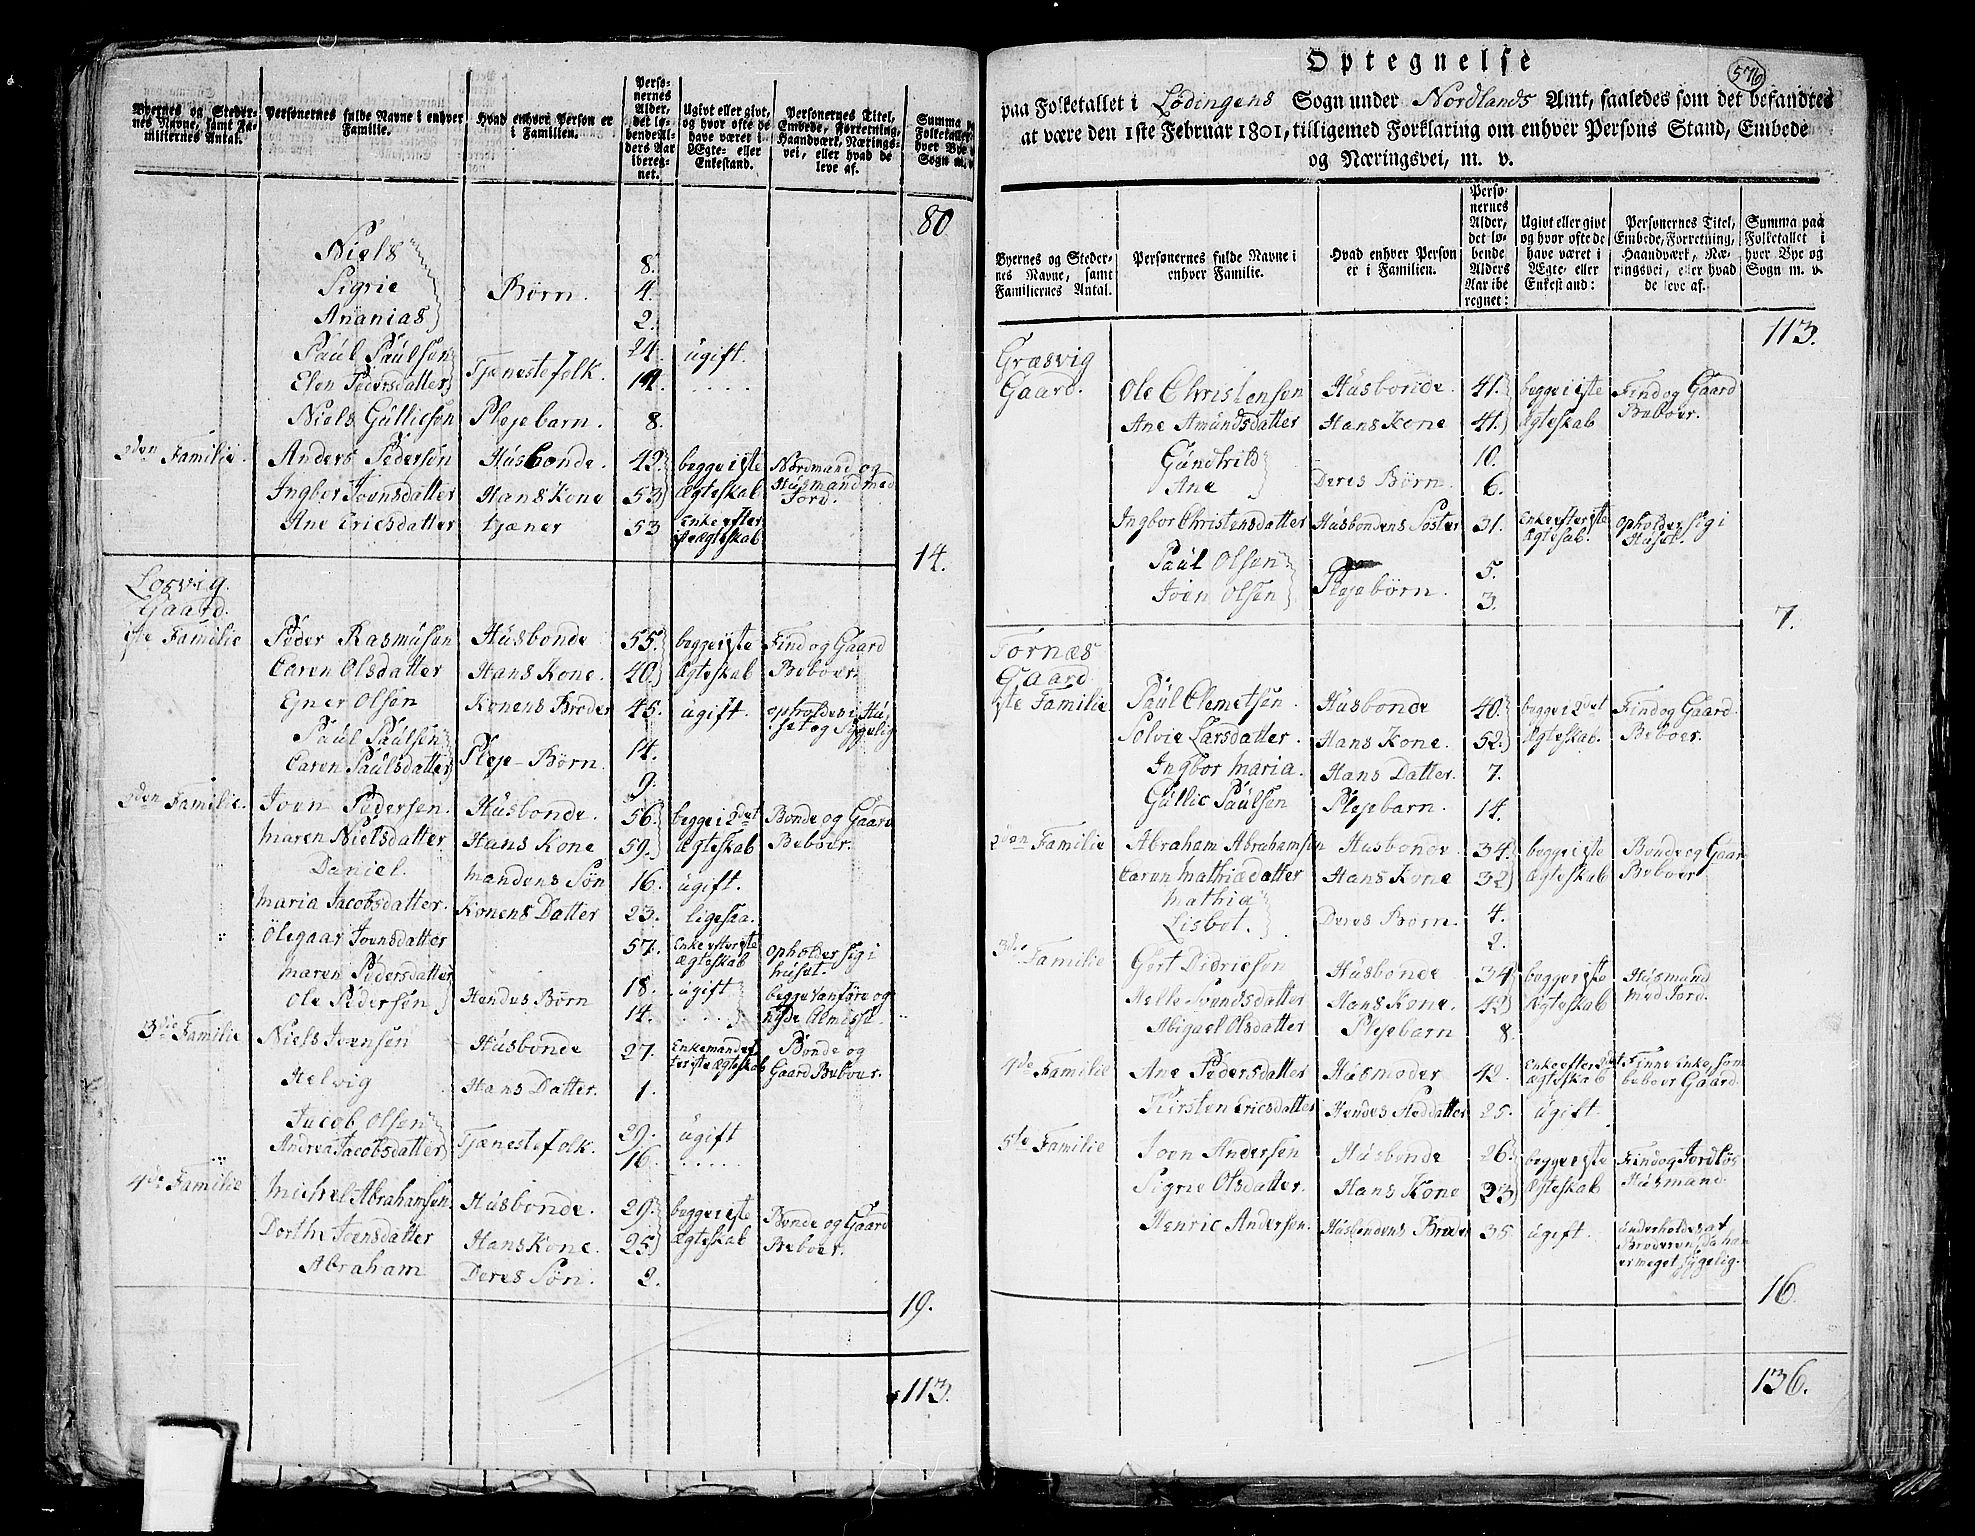 Byernes og Steder-
nes Navne, samt Fa-
miliernes Antal.
Personernes fulde Navne i enhver
Familie.
Hvad enhver Person er
i Familien.
Perso-
nernes
Alder,
det lø-
bende Al-
ders Aar
ibereg-
net.
Ugivt eller givt,
og hvor ofte de
have været i
Ægte- eller
Enkestand.
Personernes Titel,
Embede, Forretning,
Haandværk, Nærings-
vei, eller hvad de
leve af.
Summa
Folketallet
hver Bye
Sogn m.
80
Niels 8.
Sigrie Børn. 4.
Ananias 2.
Paul Paulsen Tjenestefolk. 24. ugift.
Elen Pedersdatter
Niels Gulliksen Plejebarn. 8.
2den Familie. Anders Pedersen Husbonde. 49. begge i 1ste Nordmand og
Ingbor Joensdatter Hans Kone 53 Ægteskab Husmand med
Jord.
Ane Ericsdatter tjener 53 Enke efter
1ste Ægteskab
14.
Losvig
Gaard.
1ste Familie Peder Rasmusen Husbonde 55. begge i 1ste Find og Gaard
Caren Olsdatter Hans Kone. 40. Ægteskab Beboer.
Ejner Olsen Konens Broder 45. ugift. opholdes i Hu-
set og Sygelig
Paul Paulsen Pleje-Børn. 14.
Caren Paulsdatter 9.
2den Familie. Joen Pedersen. Husbonde. 56. begge i 2det Bonde og Gaard
Maren Nielsdatter Hans Kone 59. Ægteskab Beboer.
Daniel. Mandens Søn 16. ugift.
Maria Jacobsdatter. Konens Datter 23. ligesaa.
Olegaar Joensdatter 57. Enke efter 1ste opholder sig i
Ægteskab huset.
Maren Pedersdatter Hendes Børn 18. ugift begge Vanføre og
Ole Pedersen 14. nyde Almisse.
3die Familie Niels Joensen Husbonde 27. Enkemand ef- Bonde og
ter 1ste Ægteskab Gaard Beboer.
Helvig Hans Datter. 1.
Jacob Olsen Tjenestefolk. 29. ugift
Andrea Jacobsdatter 16. .....
4de Familie Michel Abrahamsen Husbonde. 29. begge i 1ste Bonde og Gaard
Dorthe Joensdatter Hans Kone. 25 Ægteskab Beboer.
Abraham Deres Søn. 2.
19.
113.
Optegnelse
576
paa Folketallet i Lødingens Sogn under Nordlands Amt, saaledes som det befandtes
at være den 1ste Februar 1801, tilligemed Forklaring om enhver Persons Stand, Embede
og Næringsvei, m. v.
Byernes og Steder-
nes Navne, samt
Familiernes Antal.
Personernes fulde Navne i
enhver Familie.
Hvad enhver Person
er i Familien.
Perso-
nernes
Alder,
det lø-
bende
Alders
Aar ibe
regnet:
Ugivt eller givt
og hvor ofte de
have været i
Ægte- eller
Enkestand:
Personernes Titel,
Embede, Forretning,
Haandværk, Næ-
ringsvei, eller hvad
de leve af.
Summa paa
Folketallet i
hver Bye og
Sogn m. v.
113.
Græsvig
Gaard. Ole Christensen Husbonde. 41. begge i 1ste Find og Gaard
Ane Amundsdatter Hans Kone 41. Ægteskab Beboer.
10.
Ane Deres Børn. 6.
Ingbor Christensdatter Husbondens Søster 31. Enke efter 1ste opholder sig i
Ægtesab. Huset.
Paul Olsen Plejebørn. 5.
Joen Olsen 3.
7.
Fornæs
Gaard
1ste Familie Paul Clemetsen Husbonde 40. begge i 2det Find og Gaard
Solvie Larsdatter. Hans Kone. 52. Ægteskab. Beboer.
Ingbor Maria. Hans Datter. 7.
Gullic Paulsen Plejebarn. 14.
2den Familie Abraham Abrahamsen Husbonde. 34. begge i 1ste Bonde og Gaar
Caren Mathiædatter Hans Kone 32 Ægteskab Beboer
Mathiæ Deres Børn. 4.
Lisbet. 2.
3die Familie Gert Didricsen Husbonde 34 begge i 1ste Husmand
Helle Svendsdatter Hans Kone. 42 Ægteskab med Jord.
Abigael Olsdatter Plejebarn 8.
4de Familie Ane Pedersdatter Husmoder 42. Enke efter 2det Finne Enke, som
Ægteskab beboer Gaard.
Kirsten Ericsdatter Hendes Steddatter 25. ugift.
5te Familie Joen Andersen Husbonde 26. begge i 1ste Find og Jordløs
Sigrie Olsdatter. Hans Kone 23 Ægteskab Husmand.
Henric Andersen. Husbondens Broder 35. ugift. underholdes af
Broderen, da han
er meget sygelig.
16.
136.